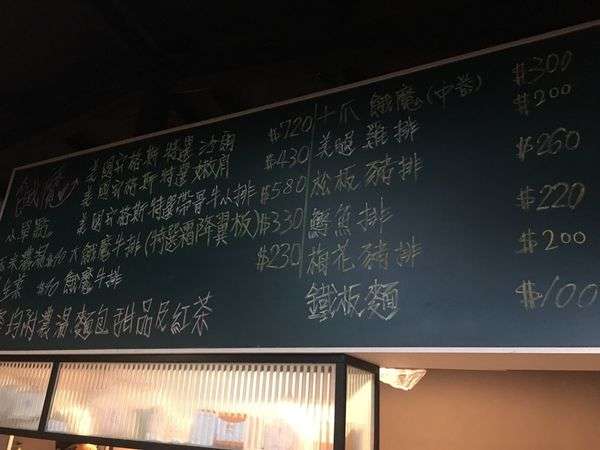 餓魔
美國安格斯特選沙朗 $720
美國安格斯特選嫩肩 $430
美國安格斯特選帶骨牛小排 $580
大餓魔牛排(特選霜降翼板) $330
餓魔牛排 $230
均附濃湯麵包甜品及紅茶
餓魔(中卷) $300
雞排 $200
松板豬排 $260
鱈魚排 $220
梅花豬排 $200
鐵板麵 $100